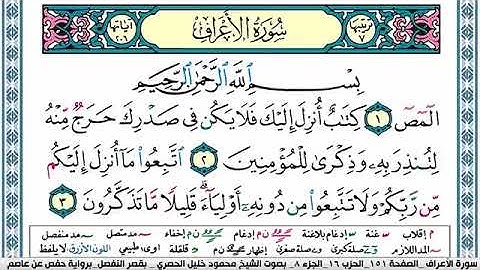 ترتيبها ٧ سُورَةُ الأَعْرَافِ آياتها ٢٠٦
بِسْمِ ٱللَّهِ ٱلرَّحْمَٰنِ ٱلرَّحِيمِ
الٓمٓصٓ ١ كِتَٰبٌ أُنزِلَ إِلَيْكَ فَلَا يَكُن فِى صَدْرِكَ حَرَجٌ مِّنْهُ
لِتُنذِرَ بِهِۦ وَذِكْرَىٰ لِلْمُؤْمِنِينَ ٢ ٱتَّبِعُوا۟ مَآ أُنزِلَ إِلَيْكُم
مِّن رَّبِّكُمْ وَلَا تَتَّبِعُوا۟ مِن دُونِهِۦٓ أَوْلِيَآءَ ۗ قَلِيلًا مَّا تَذَكَّرُونَ ٣
م إقلاب غنة إدغام بلاغنة ن م إدغام ن م إخفاء مد متصل مد منفصل
المد اللازم صلة كبرى صلة صغرى إظهار ن م قلقلة اوى طبيعي اللون الأزرق لا يلفظ
سورة الأعراف_الصفحة ١٥١_الحزب ١٦_الجزء ٨_بصوت الشيخ محمود خليل الحصري_بقصر المنفصل_برواية حفص عن عاصم